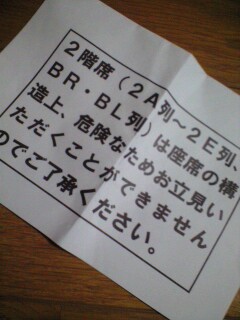 ２階席（２A列～２E列、
BR・BL列）は座席の構
造上、危険なためお立見い
ただくことができません
のでご了承ください。